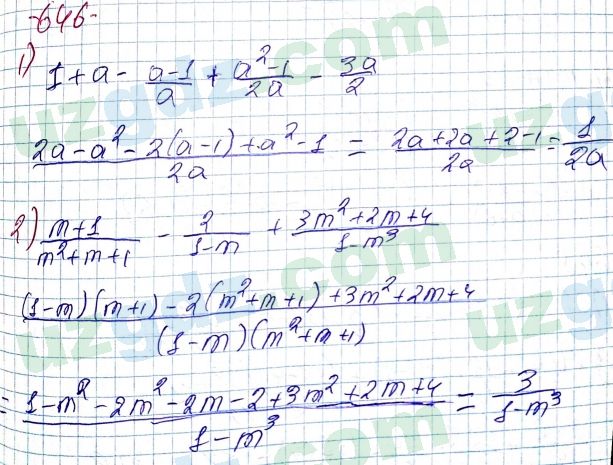 -646-
1) 1+a - \frac{a-1}{a} + \frac{a^2-1}{2a} - \frac{3a}{2}
\frac{2a-a^2-2(a-1)+a^2-1}{2a} = \frac{2a+2a+2-1}{2a} = \frac{1}{2a}
2) \frac{m+1}{m^2+m+1} - \frac{2}{1-m} + \frac{3m^2+2m+4}{1-m^3}
\frac{(1-m)(m+1)-2(m^2+m+1)+3m^2+2m+4}{(1-m)(m^2+m+1)}
= \frac{1-m^2-2m^2-2m-2+3m^2+2m+4}{1-m^3} = \frac{3}{1-m^3}
uzgdz.com